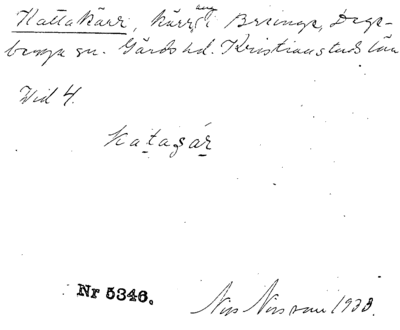 Kattakärr, kärr, äng i Brunge, Dege-
berga sn. Gärds hd. Kristianstads län
Vid 4.
katagár
Nr 5346.
Nils Nilsson 1928.